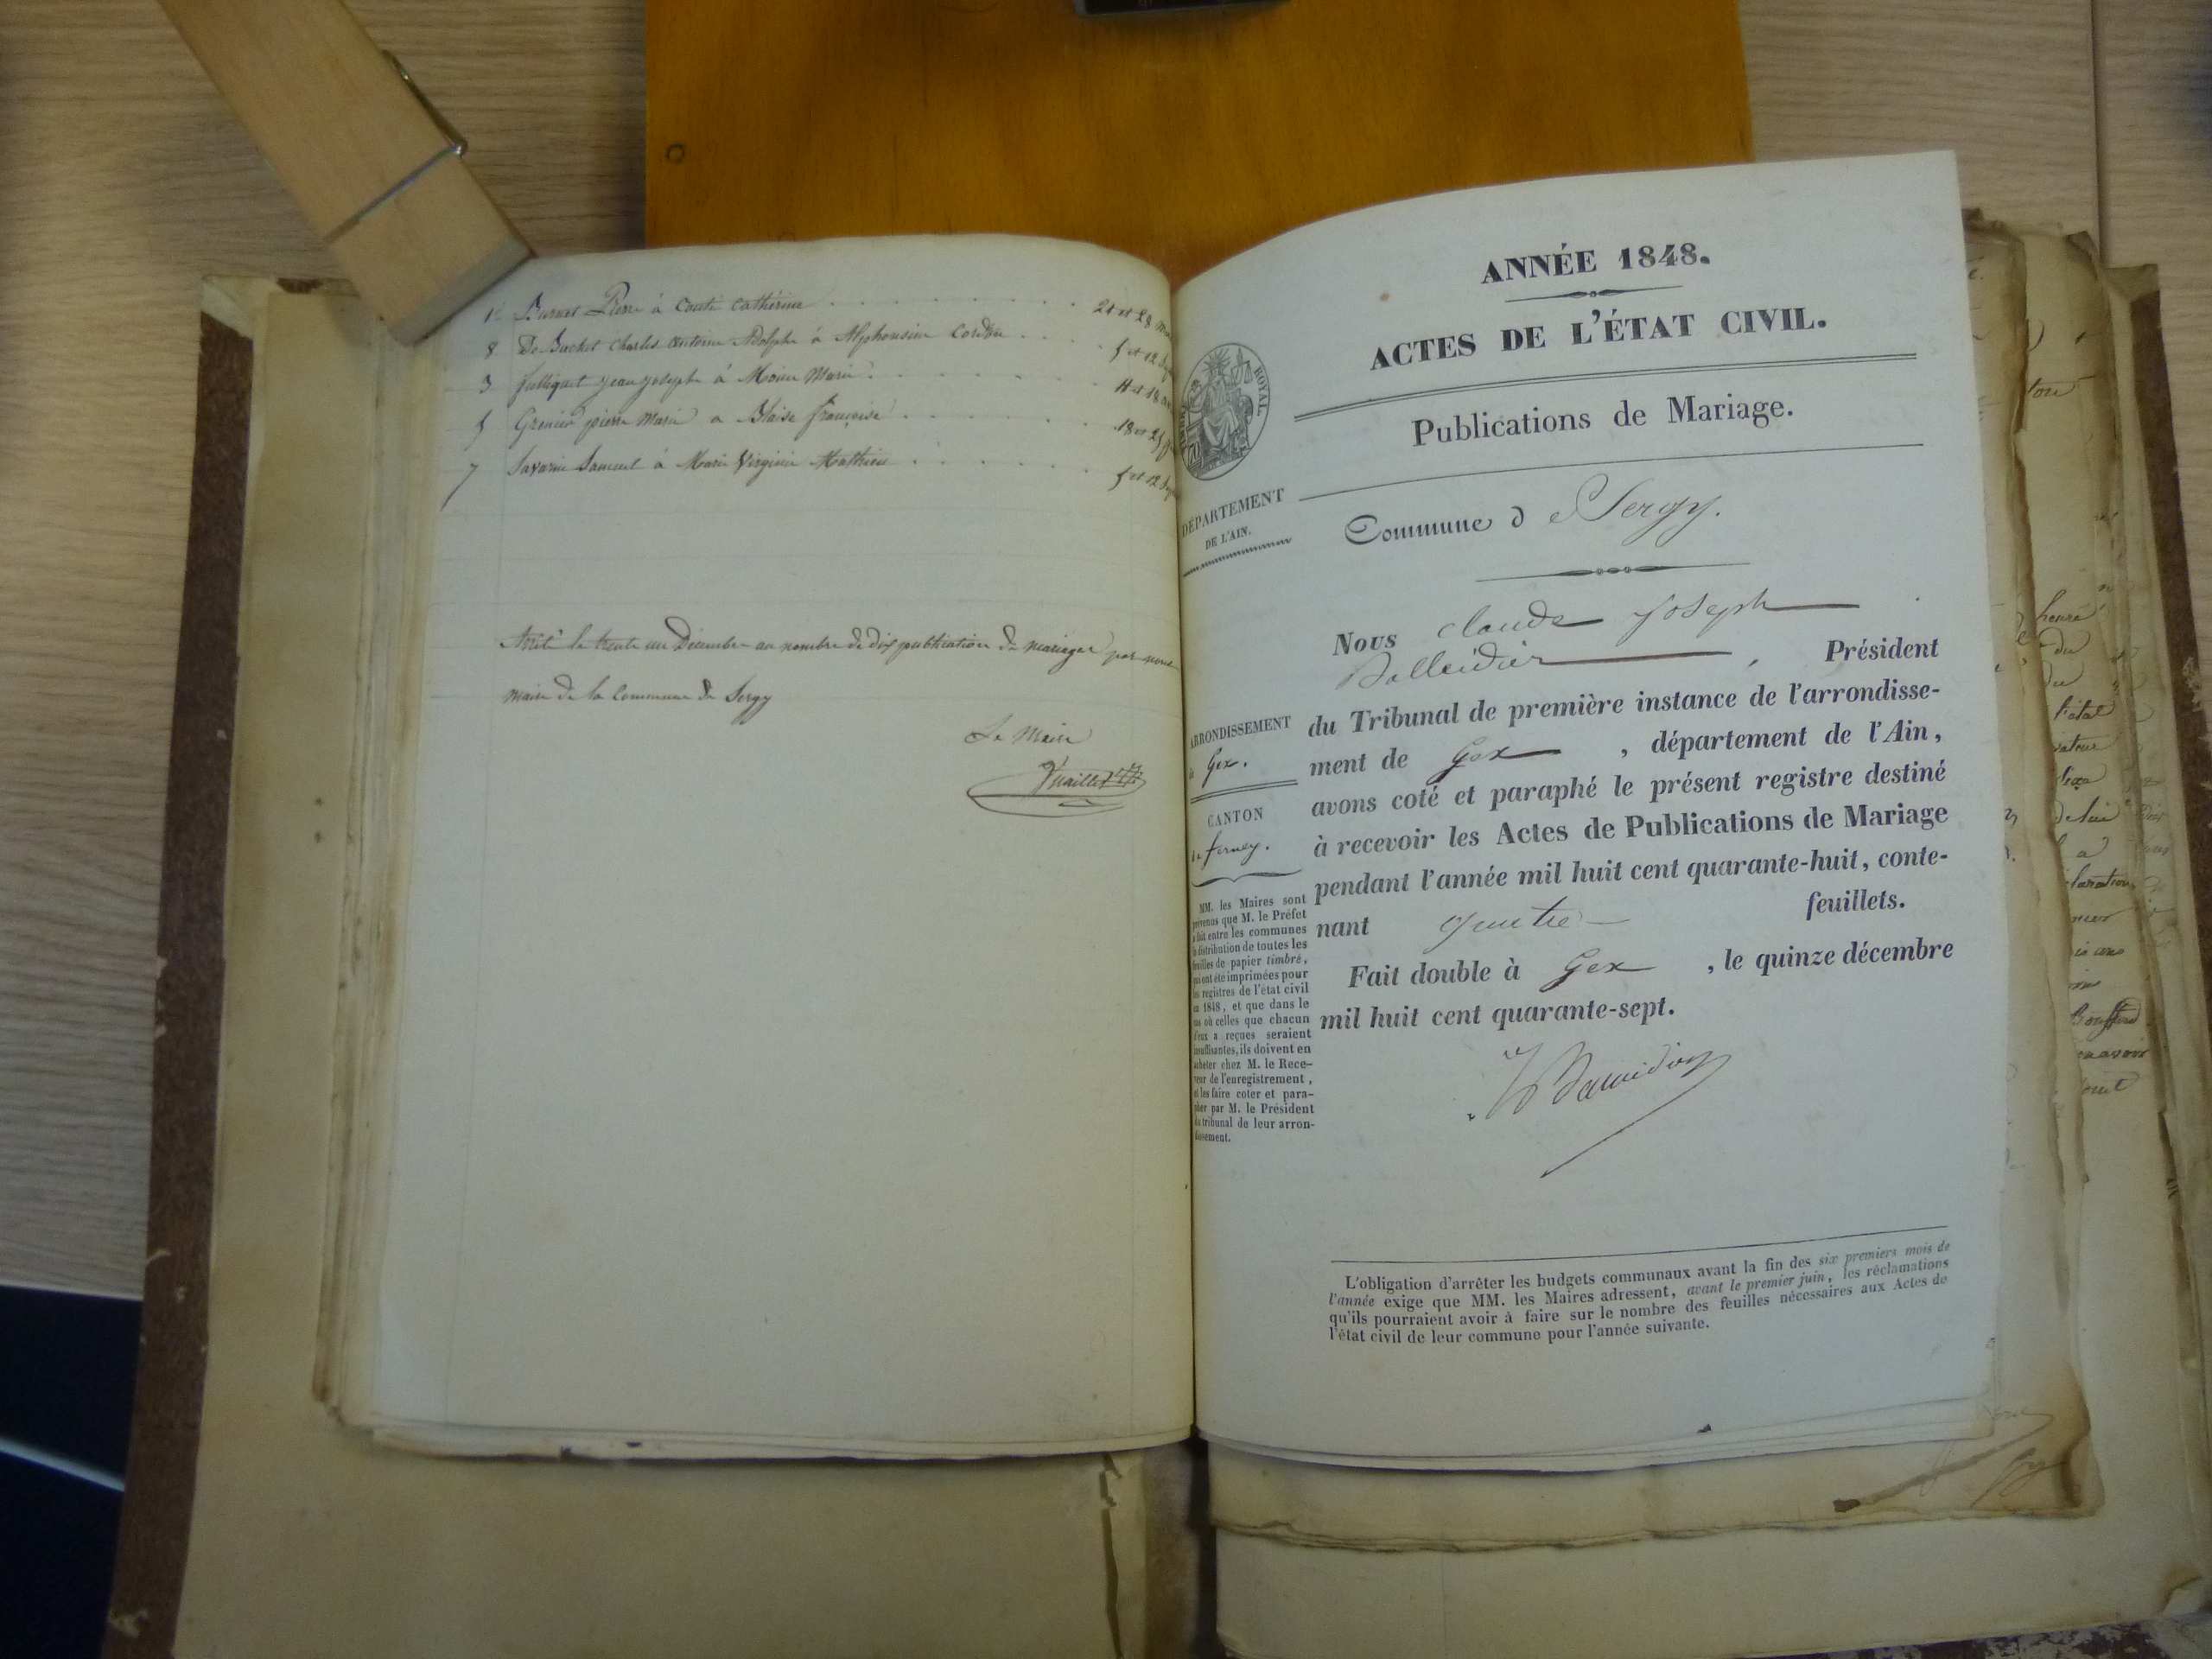 Pierre à Coutte Catherine 21 et 28
8 De Buchet Charles Antoine Adolphe à Alphonsine Cordon 5 et 12
3 falliquet jean joseph à Moine Marie
5 Grenier pierre Marie a Blaise françoise 18 et 25
7 Savarin Samuel à Marie Virginie Mathieu 5 et 12
Arrêté le trente un Décembre au nombre de dix publication de mariages par nous
maire de la Commune de Sergy
Le Maire
ANNÉE 1848.
ACTES DE L'ÉTAT CIVIL.
ROYAL
Publications de Mariage.
DÉPARTEMENT
DE L'AIN.
Commune de Sergy.
Nous claude joseph
Balleidier , Président
du Tribunal de première instance de l'arrondisse-
ment de Gex , département de l'Ain,
avons coté et paraphé le présent registre destiné
à recevoir les Actes de Publications de Mariage
pendant l'année mil huit cent quarante-huit, conte-
nant quatre feuillets.
Fait double à Gex , le quinze décembre
mil huit cent quarante-sept.
ARRONDISSEMENT
de Gex.
CANTON
de ferney.
MM. les Maires sont
prévenus que M. le Préfet
a fait entre les communes
la distribution de toutes les
feuilles de papier timbré,
qui ont été imprimées pour
les registres de l'état civil
en 1848, et que dans le
cas où celles que chacun
d'eux a reçues seraient
insuffisantes, ils doivent en
acheter chez M. le Rece-
veur de l'enregistrement,
et les faire coter et para-
pher par M. le Président
du tribunal de leur arron-
dissement.
L'obligation d'arrêter les budgets communaux avant la fin des six premiers mois de
l'année exige que MM. les Maires adressent, avant le premier juin, les réclamations
qu'ils pourraient avoir à faire sur le nombre des feuilles nécessaires aux Actes de
l'état civil de leur commune pour l'année suivante.